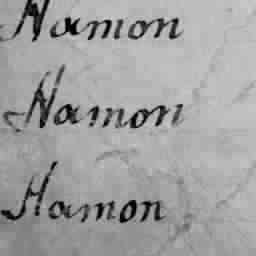 Namon
Namon
Hamon